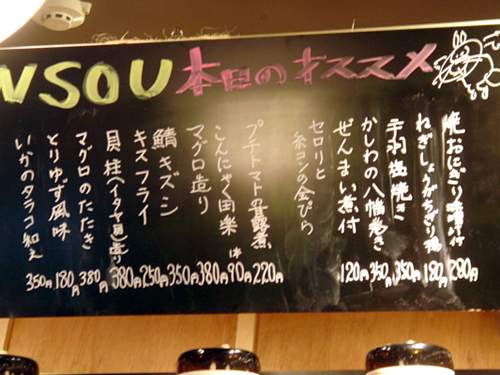 NSOU 本日のオススメ
焼おにぎり味噌汁付 280円
ねぎしょうがちぎり揚 180円
手羽塩焼き 350円
かしわの八幡巻き 350円
ぜんまい煮付 120円
セロリと糸コンの金ぴら
プチトマトの甘露煮 220円
こんにゃく田楽 1本 90円
マグロ造り 380円
鯖キズシ 350円
キスフライ 250円
貝柱(イタヤ貝)造り 380円
マグロのたたき 380円
とりゆず風味 180円
いかのタラコ和え 350円